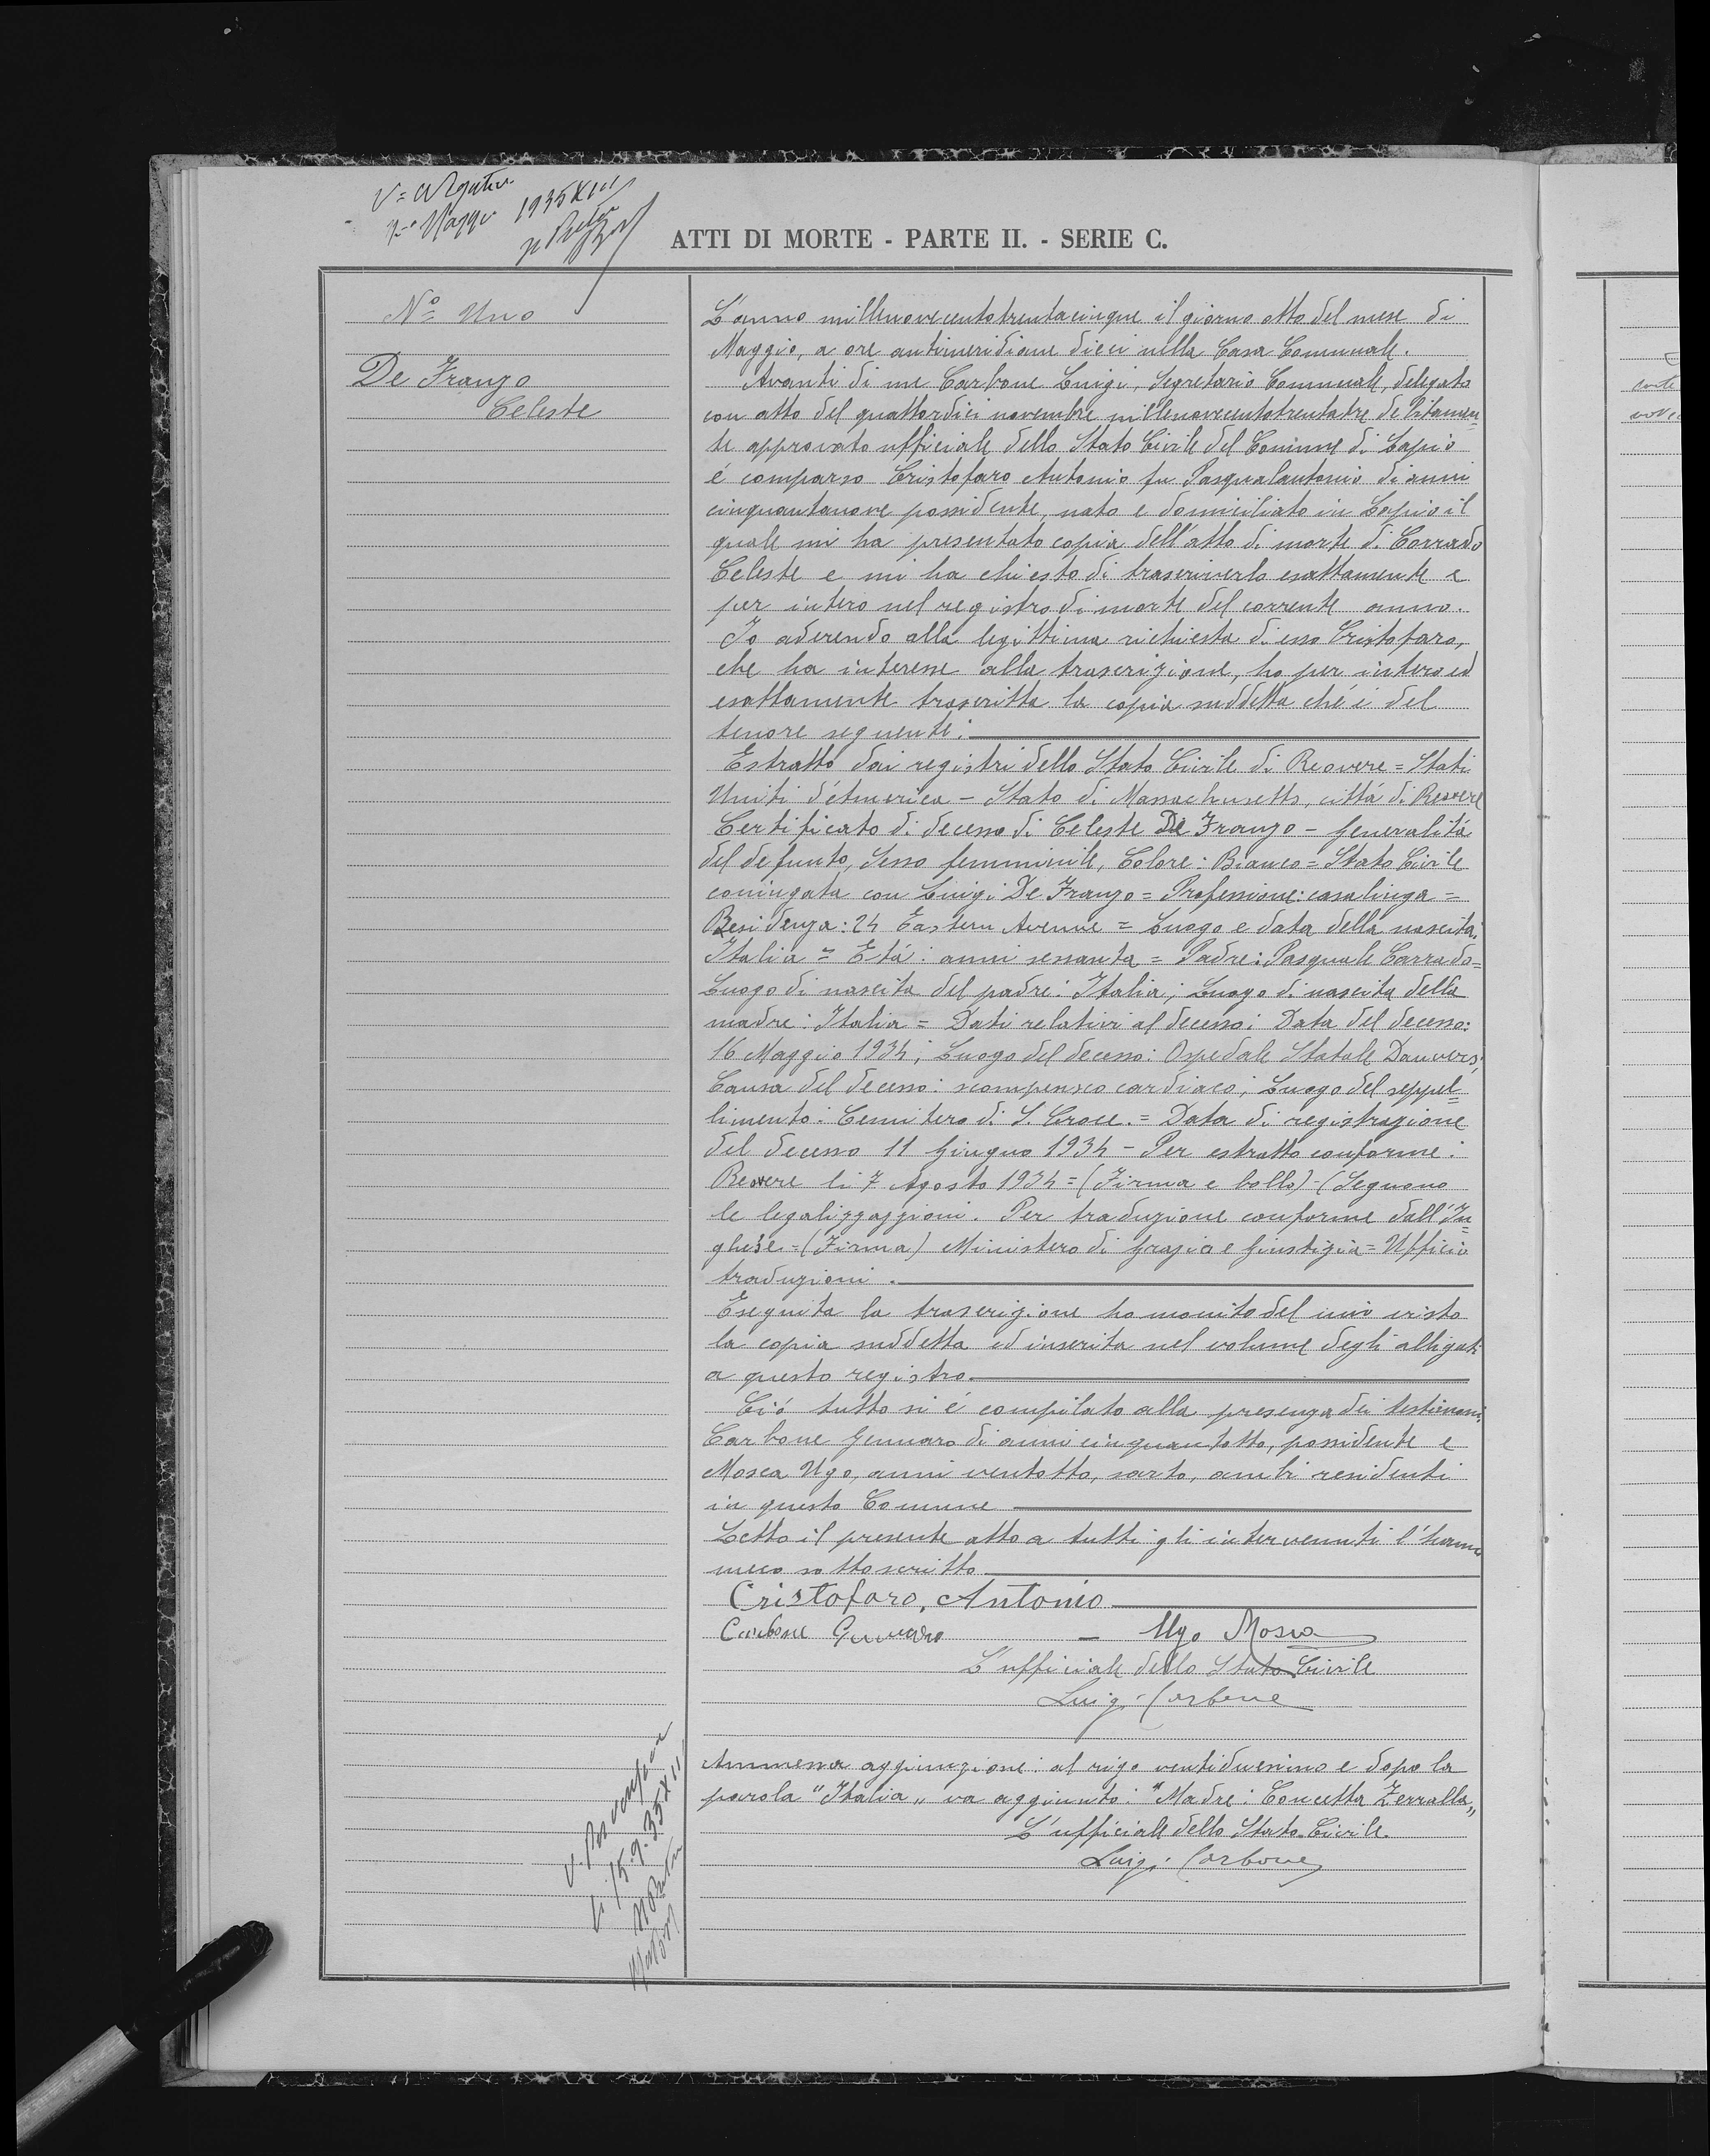 1935 XIII
ATTI DI MORTE - PARTE II. - SERIE C.
Nº Uno
De Franzo
Celeste
L'anno millenovecentotrentacinque il giorno otto del mese di
Maggio, a ore antimeridiane dieci nella Casa Comunale.
Avanti di me Carbone Luigi, Segretario Comunale, delegato
con atto del quattordici novembre millenovecentotrentatre debitamen=
te approvato ufficiale dello Stato Civile del Comune di Lapio
é comparso Cristofaro Antonio fu Pasqualantonio di anni
cinquantanove possidente, nato e domiciliato in Lapio il
quale mi ha presentato copia dell'atto di morte di Corrado
Celeste e mi ha chiesto di trascriverlo esattamente e
per intero nel registro di morte del corrente anno.
Io aderendo alla legittima richiesta di esso Cristofaro,
che ha interesse alla trascrizione, ho per intero ed
esattamente trascritta la copia suddetta che é del
tenore seguente:
Estratto dai registri dello Stato Civile di Reovere = Stati
Uniti d'America - Stato di Massachusetts, cittá di Revere
Certificato di decesso di Celeste De Franzo - generalitá
del defunto, Sesso femminile, Colore: Bianco = Stato Civile
coniugata con Luigi De Franzo = Professione: casalinga =
Residenza: 24 Eastern Avenue = Luogo e data della nascita:
Italia = Etá: anni sessanta = Padre: Pasquale Carrado =
Luogo di nascita del padre: Italia; Luogo di nascita della
madre: Italia = Dati relativi al decesso: Data del decesso:
16 Maggio 1934; Luogo del decesso: Ospedale Statale Danvers;
Causa del decesso: scompenseo cardiaco; Luogo del seppel=
limento: Cemitero di S. Croce. = Data di registrazione
del decesso 11 Giugno 1934 - Per estratto conforme:
Revere li 7 Agosto 1934 = (Firma e bollo) - (Seguono
le legalizzazzioni. Per traduzione conforme dall'In=
ghese = (Firma) Ministero di Grazia e Giustizia = Ufficio
traduzioni.
Eseguita la trascrizione ho munito del mio visto
la copia suddetta ed inserita nel volume degli alligati
a questo registro.
Ció tutto si é compilato alla presenza dei testimoni:
Carbone Gennaro di anni cinquantotto, possidente e
Mosca Ugo, anni ventotto, sarto, ambi residenti
in questo Comune
Letto il presente atto a tutti gli intervenuti l'hanno
meco sottoscritto
Cristofaro, Antonio
Carbone Gennaro - Ugo Mosca
L'ufficiale dello Stato Civile
Luigi Carbone
Ammessa aggiunzione: al rigo ventiduesimo e dopo la
parola "Italia„ va aggiunto: "Madre: Concetta Zerralla„
L'ufficiale dello Stato Civile
Luigi Carbone
li 15.9.35 XIII